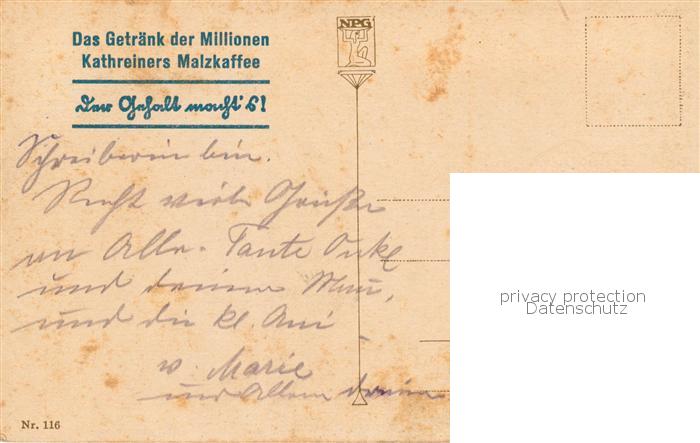 Das Getränk der Millionen
Kathreiners Malzkaffee
Der Gehalt macht's!
NPG
Schreiberin bin.
Recht viele Grüße
an Alle. Tante Onkl
und deine
und die kl. Ani
w. Marie
und Allen
privacy protection
Datenschutz
Nr. 116